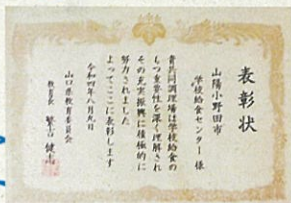 表彰状
山陽小野田市
学校給食センター 様
貴共同調理場は学校給食の
もつ重要性を深く理解され
その充実振興に積極的に
努力されました
よってここに表彰します
令和四年八月九日
山口県教育委員会
教育長 繁吉 健志